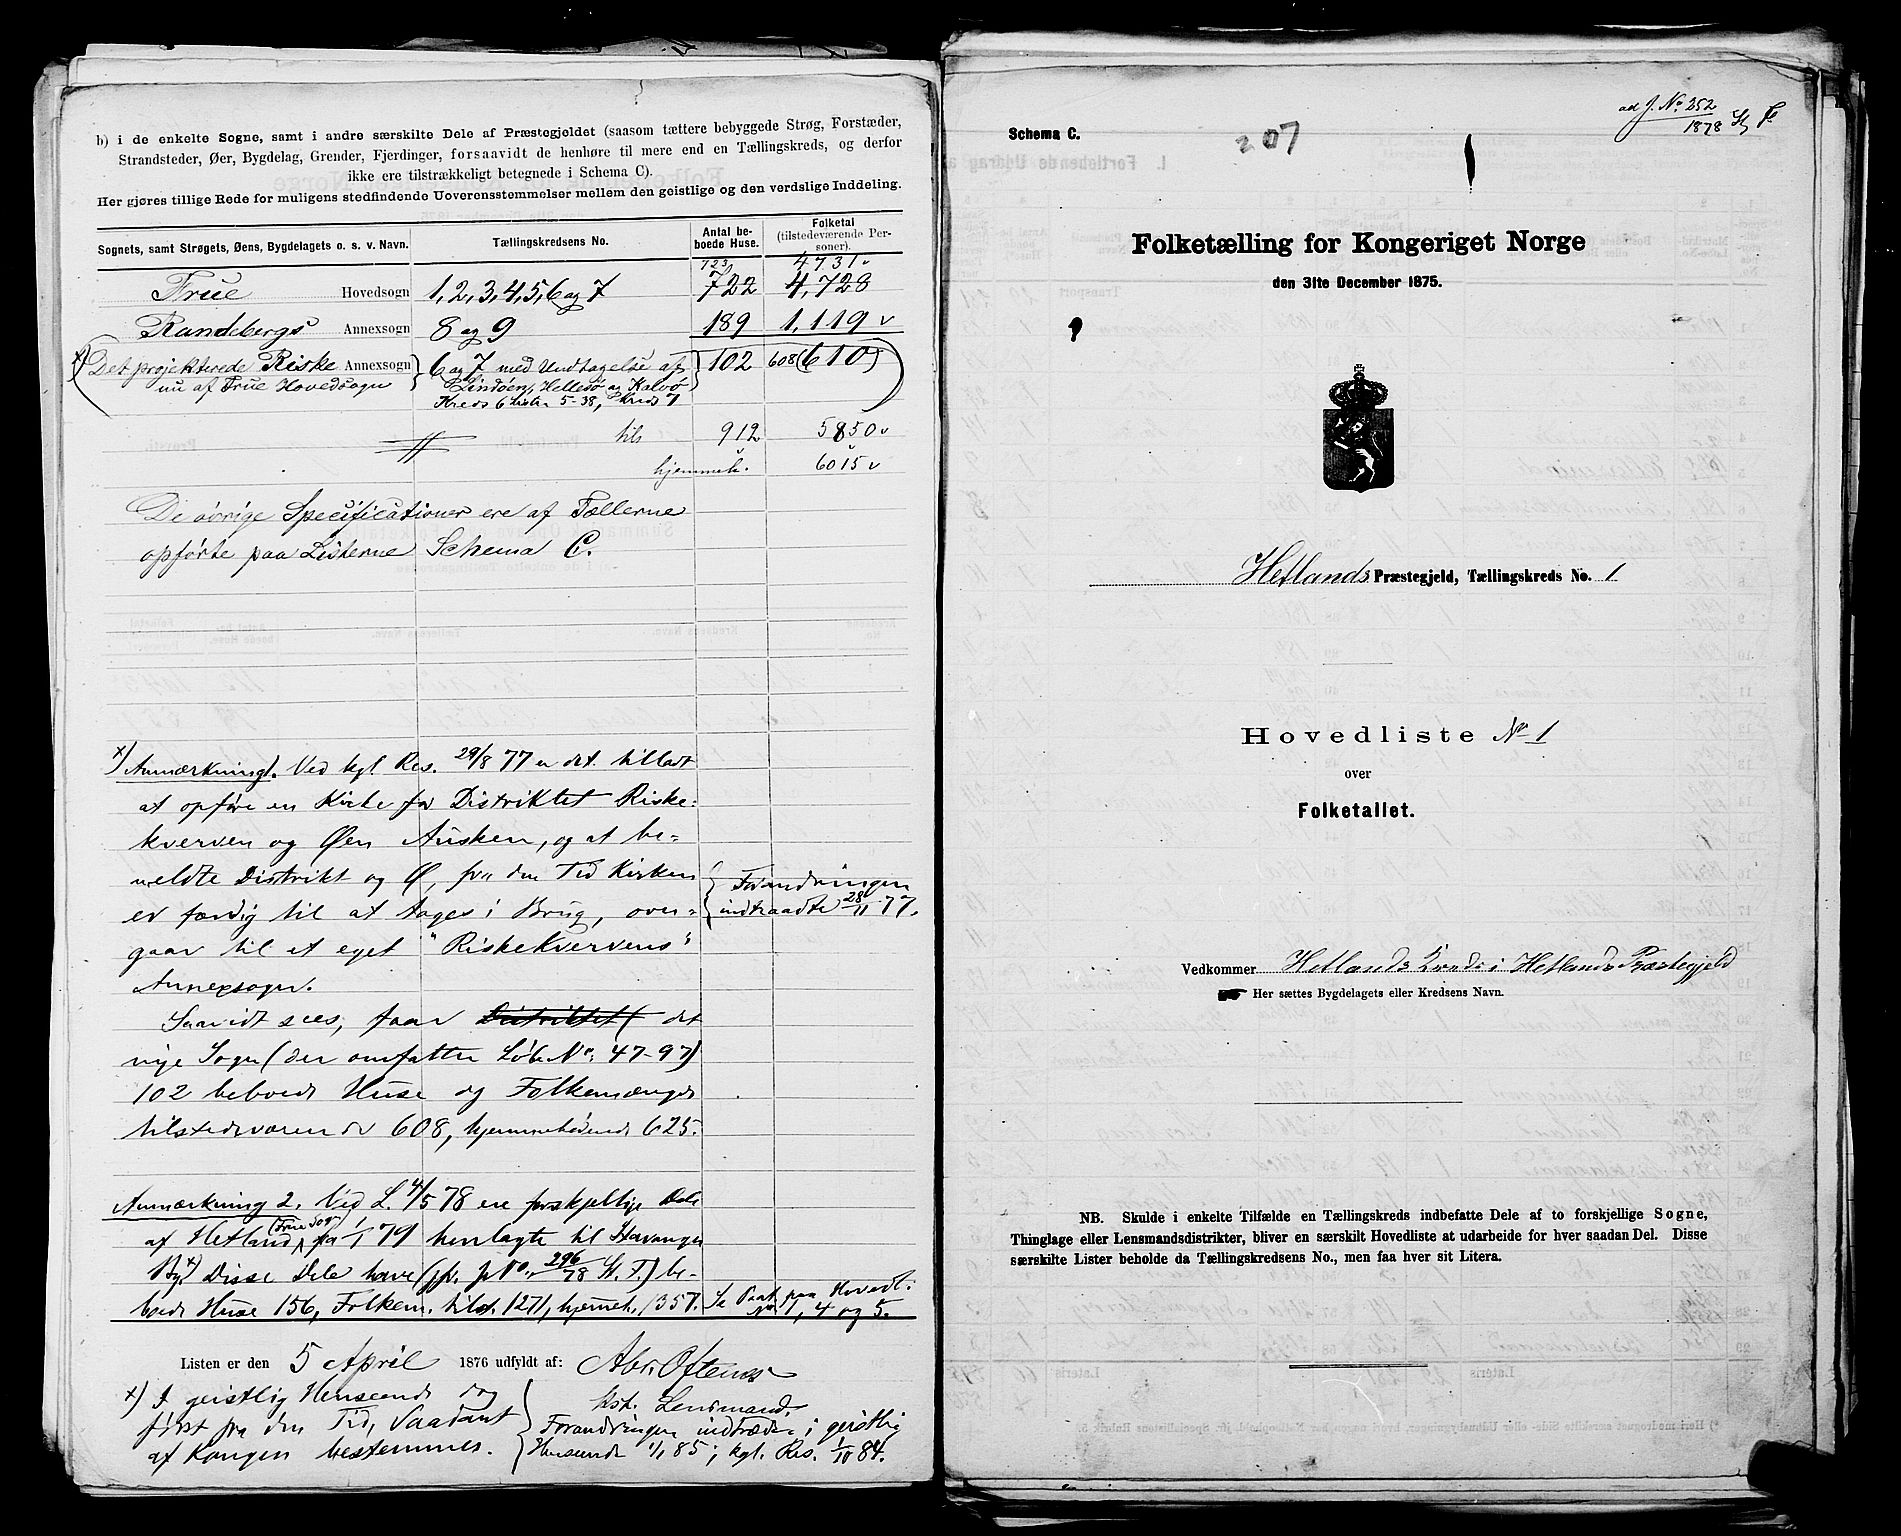 b) i de enkelte Sogne, samt i andre særskilte Dele af Præstegjeldet (saasom tættere bebyggede Strøg, Forstæder,
Strandsteder, Øer, Bygdelag, Grender, Fjerdinger, forsaavidt de henhøre til mere end en Tællingskreds, og derfor
ikke ere tilstrækkeligt betegnede i Schema C).
Her gjøres tillige Rede for muligens stedfindende Uoverensstemmelser mellem den geistlige og den verdslige Inddeling.
Sognets, samt Strøgets, Øens, Bygdelagets o. s. v. Navn. Tællingskredsens No. Antal beboede Huse. Folketal (tilstedeværende Personer).
723 4731 v
Frue Hovedsogn 1, 2, 3, 4, 5, 6 og 7 722 4,728
Randebergs Annexsogn 8 og 9 189 1,119 v
x) (Det projekterede Riske Annexsogn 6 og 7 med Undtagelse af 102 608 (610)
nu af Frue Hovedsogn Lindöen, Hellesö og Kalvö
Kreds 6 Lister 5-38, Kreds 7
tils 912 5850 v
hjemmeh. 6015 v
De övrige Specificationer ere af Tællerne
opförte paa Listerne Schema C.
x) Anmærkning 1. Ved kgl Res. 29/8 77 er det tilladt
at opföre en Kirke for Distriktet Riske-
kverven og Øen Ausken, og at be-
meldte Distrikt og Ø, fra den Tid Kirken
er færdig til at tages i Brug, over-
gaar til et eget "Riskekvervens"
Annexsogn.
{ Forandringen
indtraadte 28/11 77.
Saavidt sees, faar Distriktet det
nye Sogn (der omfatter Löb. No. 47-97)
102 beboede Huse og Folkemængde
tilstedeværende 608, hjemmehörende 625.
Anmærkning 2. Ved L. 4/5 78 ere forskjellige Dele
af Hetland (Frue Sogn) fra 1/1 79 henlagte til Stavanger
By x) Disse Dele have (jfr. J No. 296/78 St. T.) be-
boede Huse 156, Folkem. tilst. 1271, hjemmeh. 1357. Se Paat. paa Hovedl.
No. 1, 4 og 5.
Listen er den 5 April 1876 udfyldt af: Abr. Oftenæs
kst. Lensmand.
x) I geistlig Henseende dog
först fra den Tid, Saadant
af Kongen bestemmes.
{ Forandringen indtræder i geistlig
Henseende 1/1 85; kgl. Res. 1/10 84.
Schema C.
207
1
ad J. No 252/1878 St T
Folketælling for Kongeriget Norge
den 31te December 1875.
Hetlands Præstegjeld, Tællingskreds No. 1
Hovedliste No 1
over
Folketallet.
Vedkommer Hetlands Kreds i Hetlands Præstegjeld
Her sættes Bygdelagets eller Kredsens Navn.
NB. Skulde i enkelte Tilfælde en Tællingskreds indbefatte Dele af to forskjellige Sogne,
Thinglage eller Lensmandsdistrikter, bliver en særskilt Hovedliste at udarbeide for hver saadan Del. Disse
særskilte Lister beholde da Tællingskredsens No., men faa hver sit Litera.